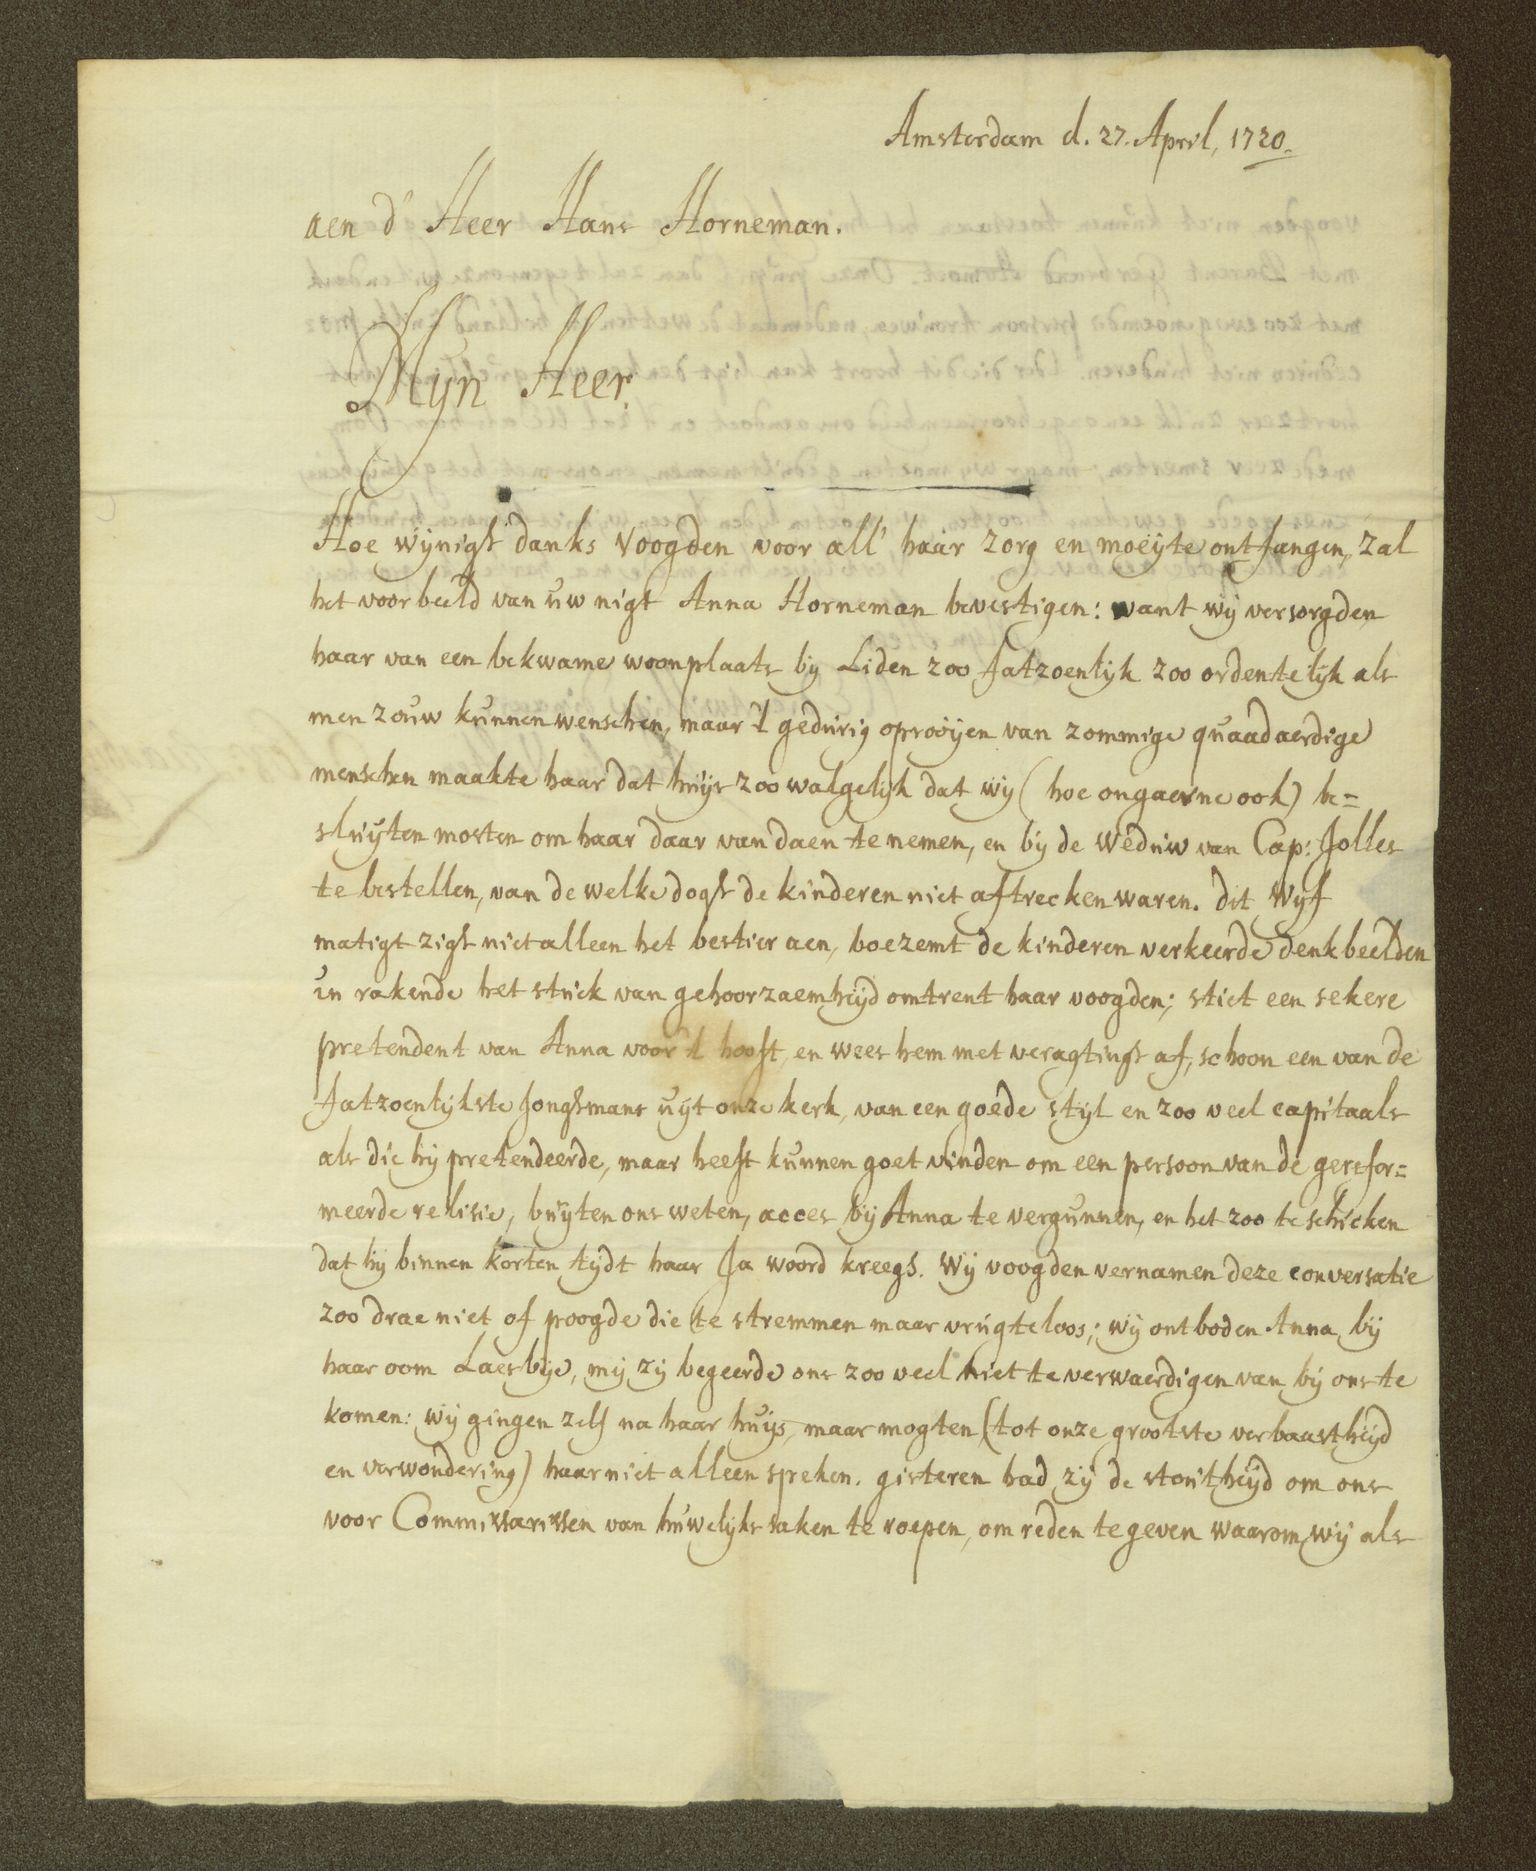 Amsterdam d. 27. April, 1720.
aen d' Heer Hans Horneman.
Mijn Heer
Hoe wijnigh danks voogden voor all' haar zorg en moeijte ontfangen, zal
het voorbeeld van uw nigt Anna Horneman bevestigen: want wij versorgden
haar van een bekwame woonplaats bij Liden zoo fatzoenlijk zoo ordentelijk als
men zouw kunnen wenschen, maar 't gedurig oprooijen van zommige quaadaerdige
menschen maakte haar dat huijs zoo walgelijk dat wij (hoe ongaerne ook) be=
sluijten mosten om haar daar van daen te nemen, en bij de weduw van Cap: Jolles
te bestellen, van de welke dogh de kinderen niet aftrecken waren. dit Wijf
matigt zigh niet alleen het bestier aen, boezemt de kinderen verkeerde denkbeelden
in rakende het stuck van gehoorzaemheijd omtrent haar voogden; stiet een sekere
pretendent van Anna voor 't hooft, en wees hem met veragtingh af, schoon een van de
fatzoenlijkste Jonghmans uijt onze kerk, van een goede stijl en zoo veel capitaals
als die hij pretendeerde, maar heeft kunnen goet vinden om een persoon van de gerefor=
meerde relisie, buijten ons weten, acces bij Anna te vergunnen, en het zoo te schicken
dat hij binnen korten tijdt haar Ja woord kreegh. Wij voogden vernamen deze conversatie
zoo drae niet of poogde die te stremmen maar vrugteloos; wij ontboden Anna bij
haar oom Laersbije, mij zij begeerde ons zoo veel niet te verwaerdigen van bij ons te
komen: wij gingen zelf na haar huijs, maar mogten (tot onze grootste verbaastheijd
en verwondering) haar niet alleen spreken. gisteren had zij de stoutheijd om ons
voor Commissarissen van huwelijkssaken te roepen, om reden te geven waarom wij als